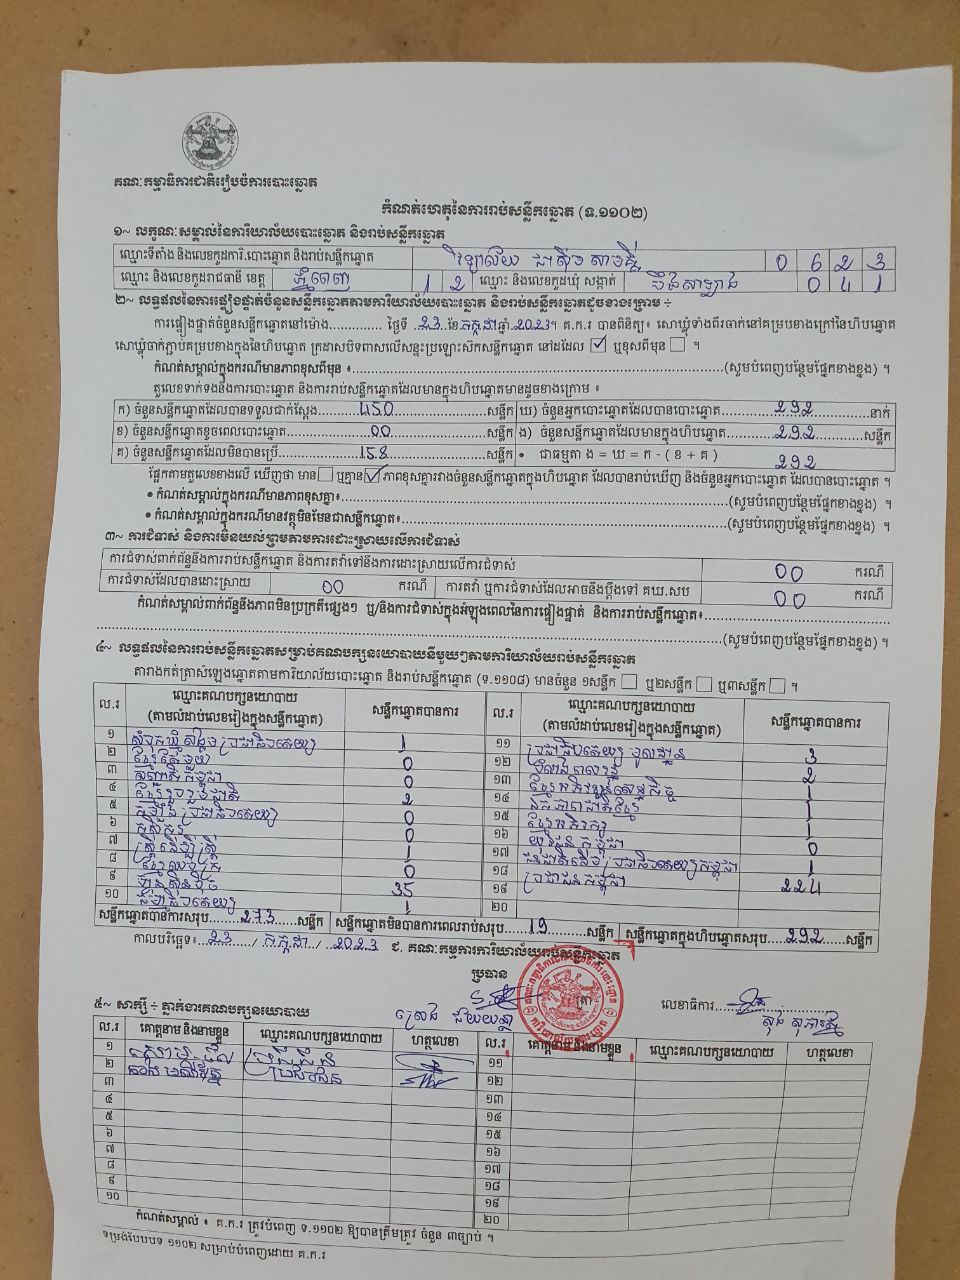 គណៈកម្មាធិការជាតិរៀបចំការបោះឆ្នោត
កំណត់ហេតុនៃការរាប់សន្លឹកឆ្នោត (ទ.១១០២)
១~ លក្ខណៈសម្គាល់នៃការិយាល័យបោះឆ្នោត និងរាប់សន្លឹកឆ្នោត
ឈ្មោះទីតាំង និងលេខកូដការិ.បោះឆ្នោត និងរាប់សន្លឹកឆ្នោត វិទ្យាល័យ 0 6 2 3
ឈ្មោះ និងលេខកូដរាជធានី ខេត្ត ភ្នំពេញ 1 2 ឈ្មោះ និងលេខកូដឃុំ សង្កាត់ បឹងសាឡាង 0 4 1
២~ លទ្ធផលនៃការផ្ទៀងផ្ទាត់ចំនួនសន្លឹកឆ្នោតតាមការិយាល័យបោះឆ្នោត និងរាប់សន្លឹកឆ្នោតដូចខាងក្រោម ÷
ការផ្ទៀងផ្ទាត់ចំនួនសន្លឹកឆ្នោតនៅម៉ោង.............. ថ្ងៃទី ..23..ខែ.កក្កដា.ឆ្នាំ.2023។ គ.ក.រ បានពិនិត្យ៖ សោឃ្មុំទាំងពីរចាក់នៅគម្របខាងក្រៅនៃហិបឆ្នោត
សោឃ្មុំចាក់ភ្ជាប់គម្របខាងក្នុងនៃហិបឆ្នោត ក្រដាសបិទពាសលើសន្ទះប្រឡោះស៊កសន្លឹកឆ្នោត នៅដដែល ☑ ឬខុសពីមុន ☐ ។
កំណត់សម្គាល់ក្នុងករណីមានភាពខុសពីមុន ៖.....(សូមបំពេញបន្ថែមផ្នែកខាងខ្នង) ។
តួលេខទាក់ទងនឹងការបោះឆ្នោត និងការរាប់សន្លឹកឆ្នោតដែលមានក្នុងហិបឆ្នោតមានដូចខាងក្រោម ៖
ក) ចំនួនសន្លឹកឆ្នោតដែលបានទទួលជាក់ស្ដែង.....450.....សន្លឹក ឃ) ចំនួនអ្នកបោះឆ្នោតដែលបានបោះឆ្នោត.....292.....នាក់
ខ) ចំនួនសន្លឹកឆ្នោតខូចពេលបោះឆ្នោត.....00.....សន្លឹក ង) ចំនួនសន្លឹកឆ្នោតដែលមានក្នុងហិបឆ្នោត.....292.....សន្លឹក
គ) ចំនួនសន្លឹកឆ្នោតដែលមិនបានប្រើ.....158.....សន្លឹក • ជាធម្មតា ង = ឃ = ក - ( ខ + គ ) 292
ផ្អែកតាមតួលេខខាងលើ ឃើញថា មាន ☐ ឬគ្មាន ☑ ភាពខុសគ្នារវាងចំនួនសន្លឹកឆ្នោតក្នុងហិបឆ្នោត ដែលបានរាប់ឃើញ និងចំនួនអ្នកបោះឆ្នោត ដែលបានបោះឆ្នោត ។
• កំណត់សម្គាល់ក្នុងករណីមានភាពខុសគ្នា៖.....(សូមបំពេញបន្ថែមផ្នែកខាងខ្នង) ។
• កំណត់សម្គាល់ក្នុងករណីមានវត្ថុមិនមែនជាសន្លឹកឆ្នោត៖.....(សូមបំពេញបន្ថែមផ្នែកខាងខ្នង) ។
៣~ ការជំទាស់ និងការមិនយល់ព្រមតាមការដោះស្រាយលើការជំទាស់
ការជំទាស់ពាក់ព័ន្ធនឹងការរាប់សន្លឹកឆ្នោត និងការតវ៉ាទៅនឹងការដោះស្រាយលើការជំទាស់ 00 ករណី
ការជំទាស់ដែលបានដោះស្រាយ 00 ករណី ការតវ៉ា ឬការជំទាស់ដែលអាចនឹងប្ដឹងទៅ គឃ.សប 00 ករណី
កំណត់សម្គាល់ពាក់ព័ន្ធនឹងភាពមិនប្រក្រតីផ្សេងៗ ឬ/និងការជំទាស់ក្នុងអំឡុងពេលនៃការផ្ទៀងផ្ទាត់ និងការរាប់សន្លឹកឆ្នោត៖.....
.....(សូមបំពេញបន្ថែមផ្នែកខាងខ្នង) ។
៤~ លទ្ធផលនៃការរាប់សន្លឹកឆ្នោតសម្រាប់គណបក្សនយោបាយនីមួយៗតាមការិយាល័យរាប់សន្លឹកឆ្នោត
តារាងកត់ត្រាសំឡេងឆ្នោតតាមការិយាល័យបោះឆ្នោត និងរាប់សន្លឹកឆ្នោត (ទ.១១០៨) មានចំនួន ១សន្លឹក ☐ ឬ២សន្លឹក ☐ ឬ៣សន្លឹក ☐ ។
ល.រ ឈ្មោះគណបក្សនយោបាយ (តាមលំដាប់លេខរៀងក្នុងសន្លឹកឆ្នោត) សន្លឹកឆ្នោតបានការ ល.រ ឈ្មោះគណបក្សនយោបាយ (តាមលំដាប់លេខរៀងក្នុងសន្លឹកឆ្នោត) សន្លឹកឆ្នោតបានការ
១ សំបុកឃ្មុំសង្គមប្រជាធិបតេយ្យ 1 ១១ ប្រជាធិបតេយ្យមូលដ្ឋាន 3
២ ខ្មែរតែមួយ 0 ១២ 2
៣ សញ្ជាតិកម្ពុជា 0 ១៣ ខ្មែរអភិវឌ្ឍន៍សេដ្ឋកិច្ច 1
៤ ខ្មែររួបរួមជាតិ 2 ១៤ ឯកភាពជាតិខ្មែរ 1
៥ កម្លាំងប្រជាធិបតេយ្យ 0 ១៥ ខ្មែរអភិរក្ស 1
៦ កសិករ 0 ១៦ យុវជនកម្ពុជា 0
៧ ស្ត្រីដើម្បីស្ត្រី 1 ១៧ ជនជាតិដើមប្រជាធិបតេយ្យកម្ពុជា 1
៨ ខ្មែរឈប់ក្រ 0 ១៨ ប្រជាជនកម្ពុជា 224
៩ ហ្វ៊ុនស៊ិនប៉ិច 35 ១៩
១០ ធម្មាធិបតេយ្យ 1 ២០
សន្លឹកឆ្នោតបានការសរុប.....273.....សន្លឹក សន្លឹកឆ្នោតមិនបានការពេលរាប់សរុប.....19.....សន្លឹក សន្លឹកឆ្នោតក្នុងហិបឆ្នោតសរុប.....292.....សន្លឹក
កាលបរិច្ឆេទ៖.....23...../ កក្កដា.../...2023 ជ. គណៈកម្មការការិយាល័យរាប់សន្លឹកឆ្នោត
ប្រធាន ត្រា លេខាធិការ.....
៥~ សាក្សី ÷ ភ្នាក់ងារគណបក្សនយោបាយ
ល.រ គោត្តនាម និងនាមខ្លួន ឈ្មោះគណបក្សនយោបាយ ហត្ថលេខា ល.រ គោត្តនាម និងនាមខ្លួន ឈ្មោះគណបក្សនយោបាយ ហត្ថលេខា
១ ១១
២ ប្រជាជន ១២
៣ ១៣
៤ ១៤
៥ ១៥
៦ ១៦
៧ ១៧
៨ ១៨
៩ ១៩
១០ ២០
កំណត់សម្គាល់ ៖ គ.ក.រ ត្រូវបំពេញ ទ.១១០២ ឱ្យបានត្រឹមត្រូវ ចំនួន ៣ច្បាប់ ។
ទម្រង់បែបបទ ១១០២ សម្រាប់បំពេញដោយ គ.ក.រ